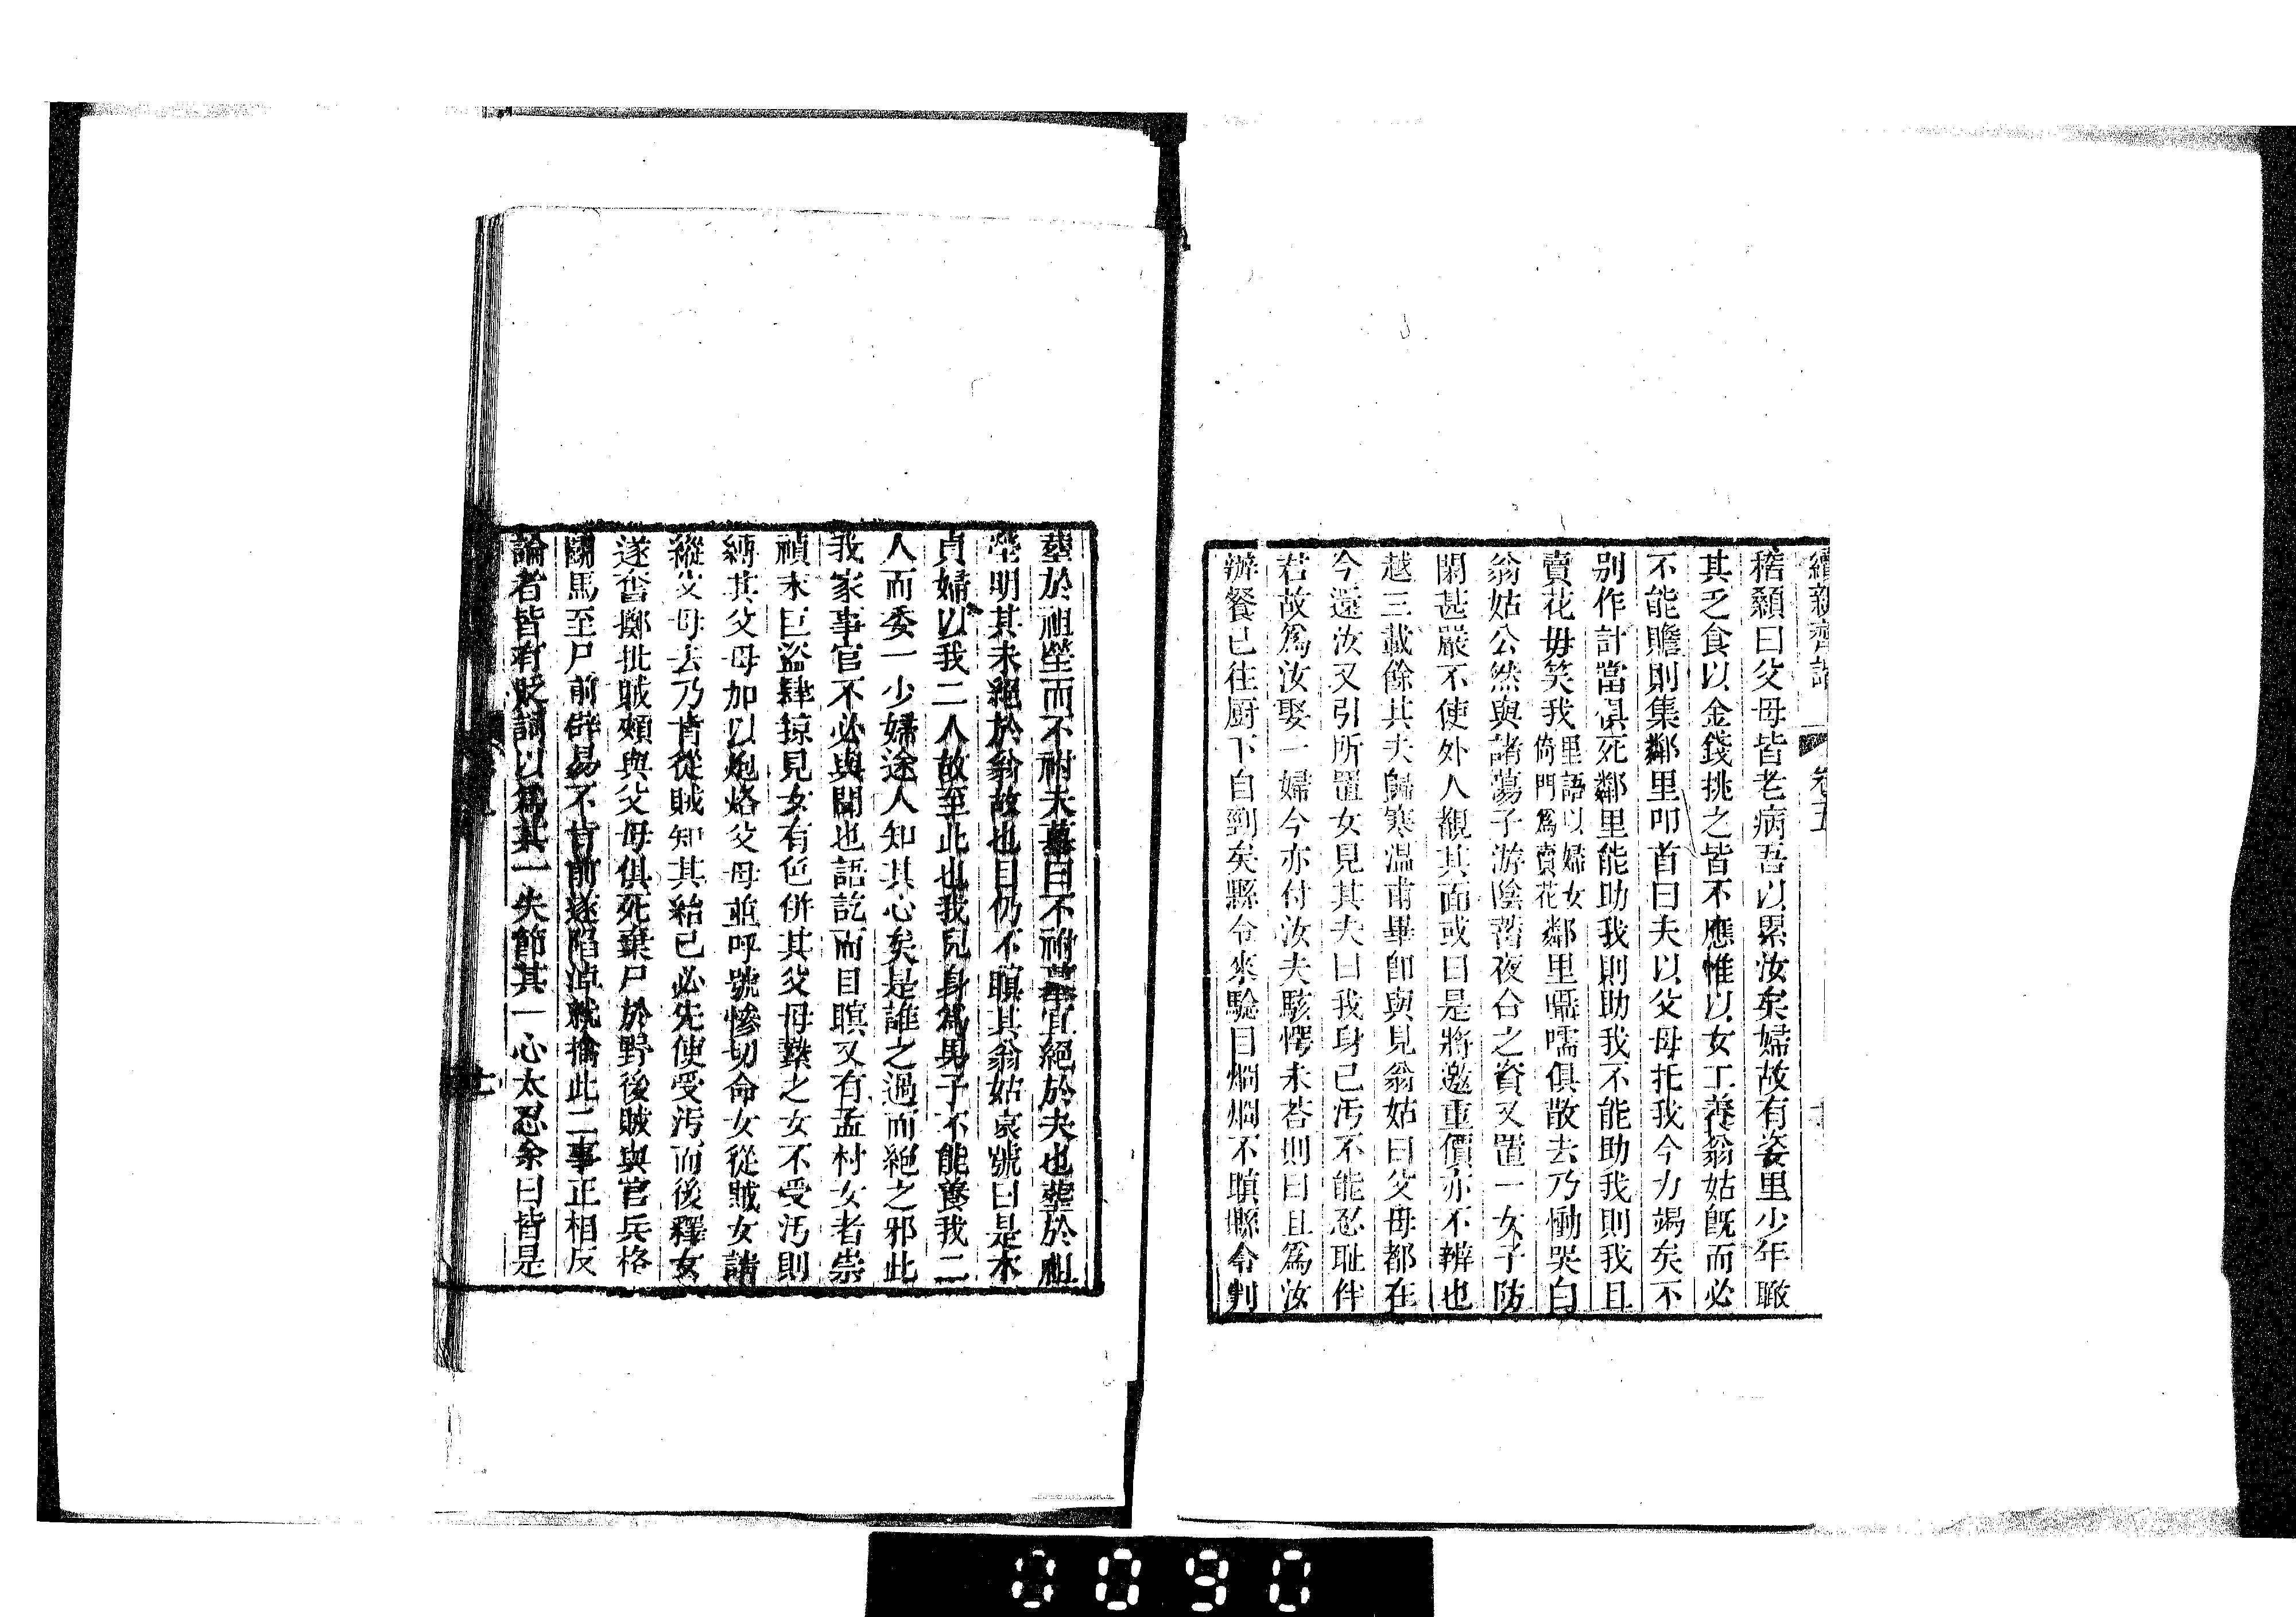 續新齊諧 卷五
稽顙曰父母皆老病吾以累汝矣婦故有姿里少年瞰
其乏食以金錢挑之皆不應惟以女工養翁姑旣而必
不能贍則集鄰里叩首曰夫以父母托我今力竭矣不
別作計當俱死鄰里能助我則助我不能助我則我且
賣花毋笑我里語以婦女倚門為賣花鄰里囁嚅俱散去乃慟哭白
翁姑公然與諸蕩子游陰蓄夜合之資又置一女子防
閑甚嚴不使外人覩其面或曰是將邀重價亦不辨也
越三載餘其夫歸寒温甫畢卽與見翁姑曰父母都在
今還汝又引所置女見其夫曰我身已汚不能忍耻伴
君故爲汝娶一婦今亦付汝夫駭愕未荅則曰且爲汝
辦餐已往厨下自剄矣縣令來驗目烱烱不瞑縣令判
塟於祖塋而不祔夫墓曰不祔墓宜絕於夫也葬於祖
塋明其未絕於翁故也目仍不瞑其翁姑哀號曰是本
貞婦以我二人故至此也我兒身爲男子不能養我二
人而委一少婦途人知其心矣是誰之過而絕之邪此
我家事官不必與聞也語訖而目瞑又有孟村女者崇
禎末巨盜肆掠見女有色併其父母縶之女不受汚則
縛其父母加以炮烙父母並呼號慘切命女從賊女請
縱父母去乃肯從賊知其紿已必先使受汚而後釋女
遂奮擲批賊頰與父母俱死棄尸於野後賊與官兵格
鬬馬至尸前辟易不肯前遂陷淖就擒此二事正相反
論者皆有貶詞以爲其一失節其一心太忍余曰皆是